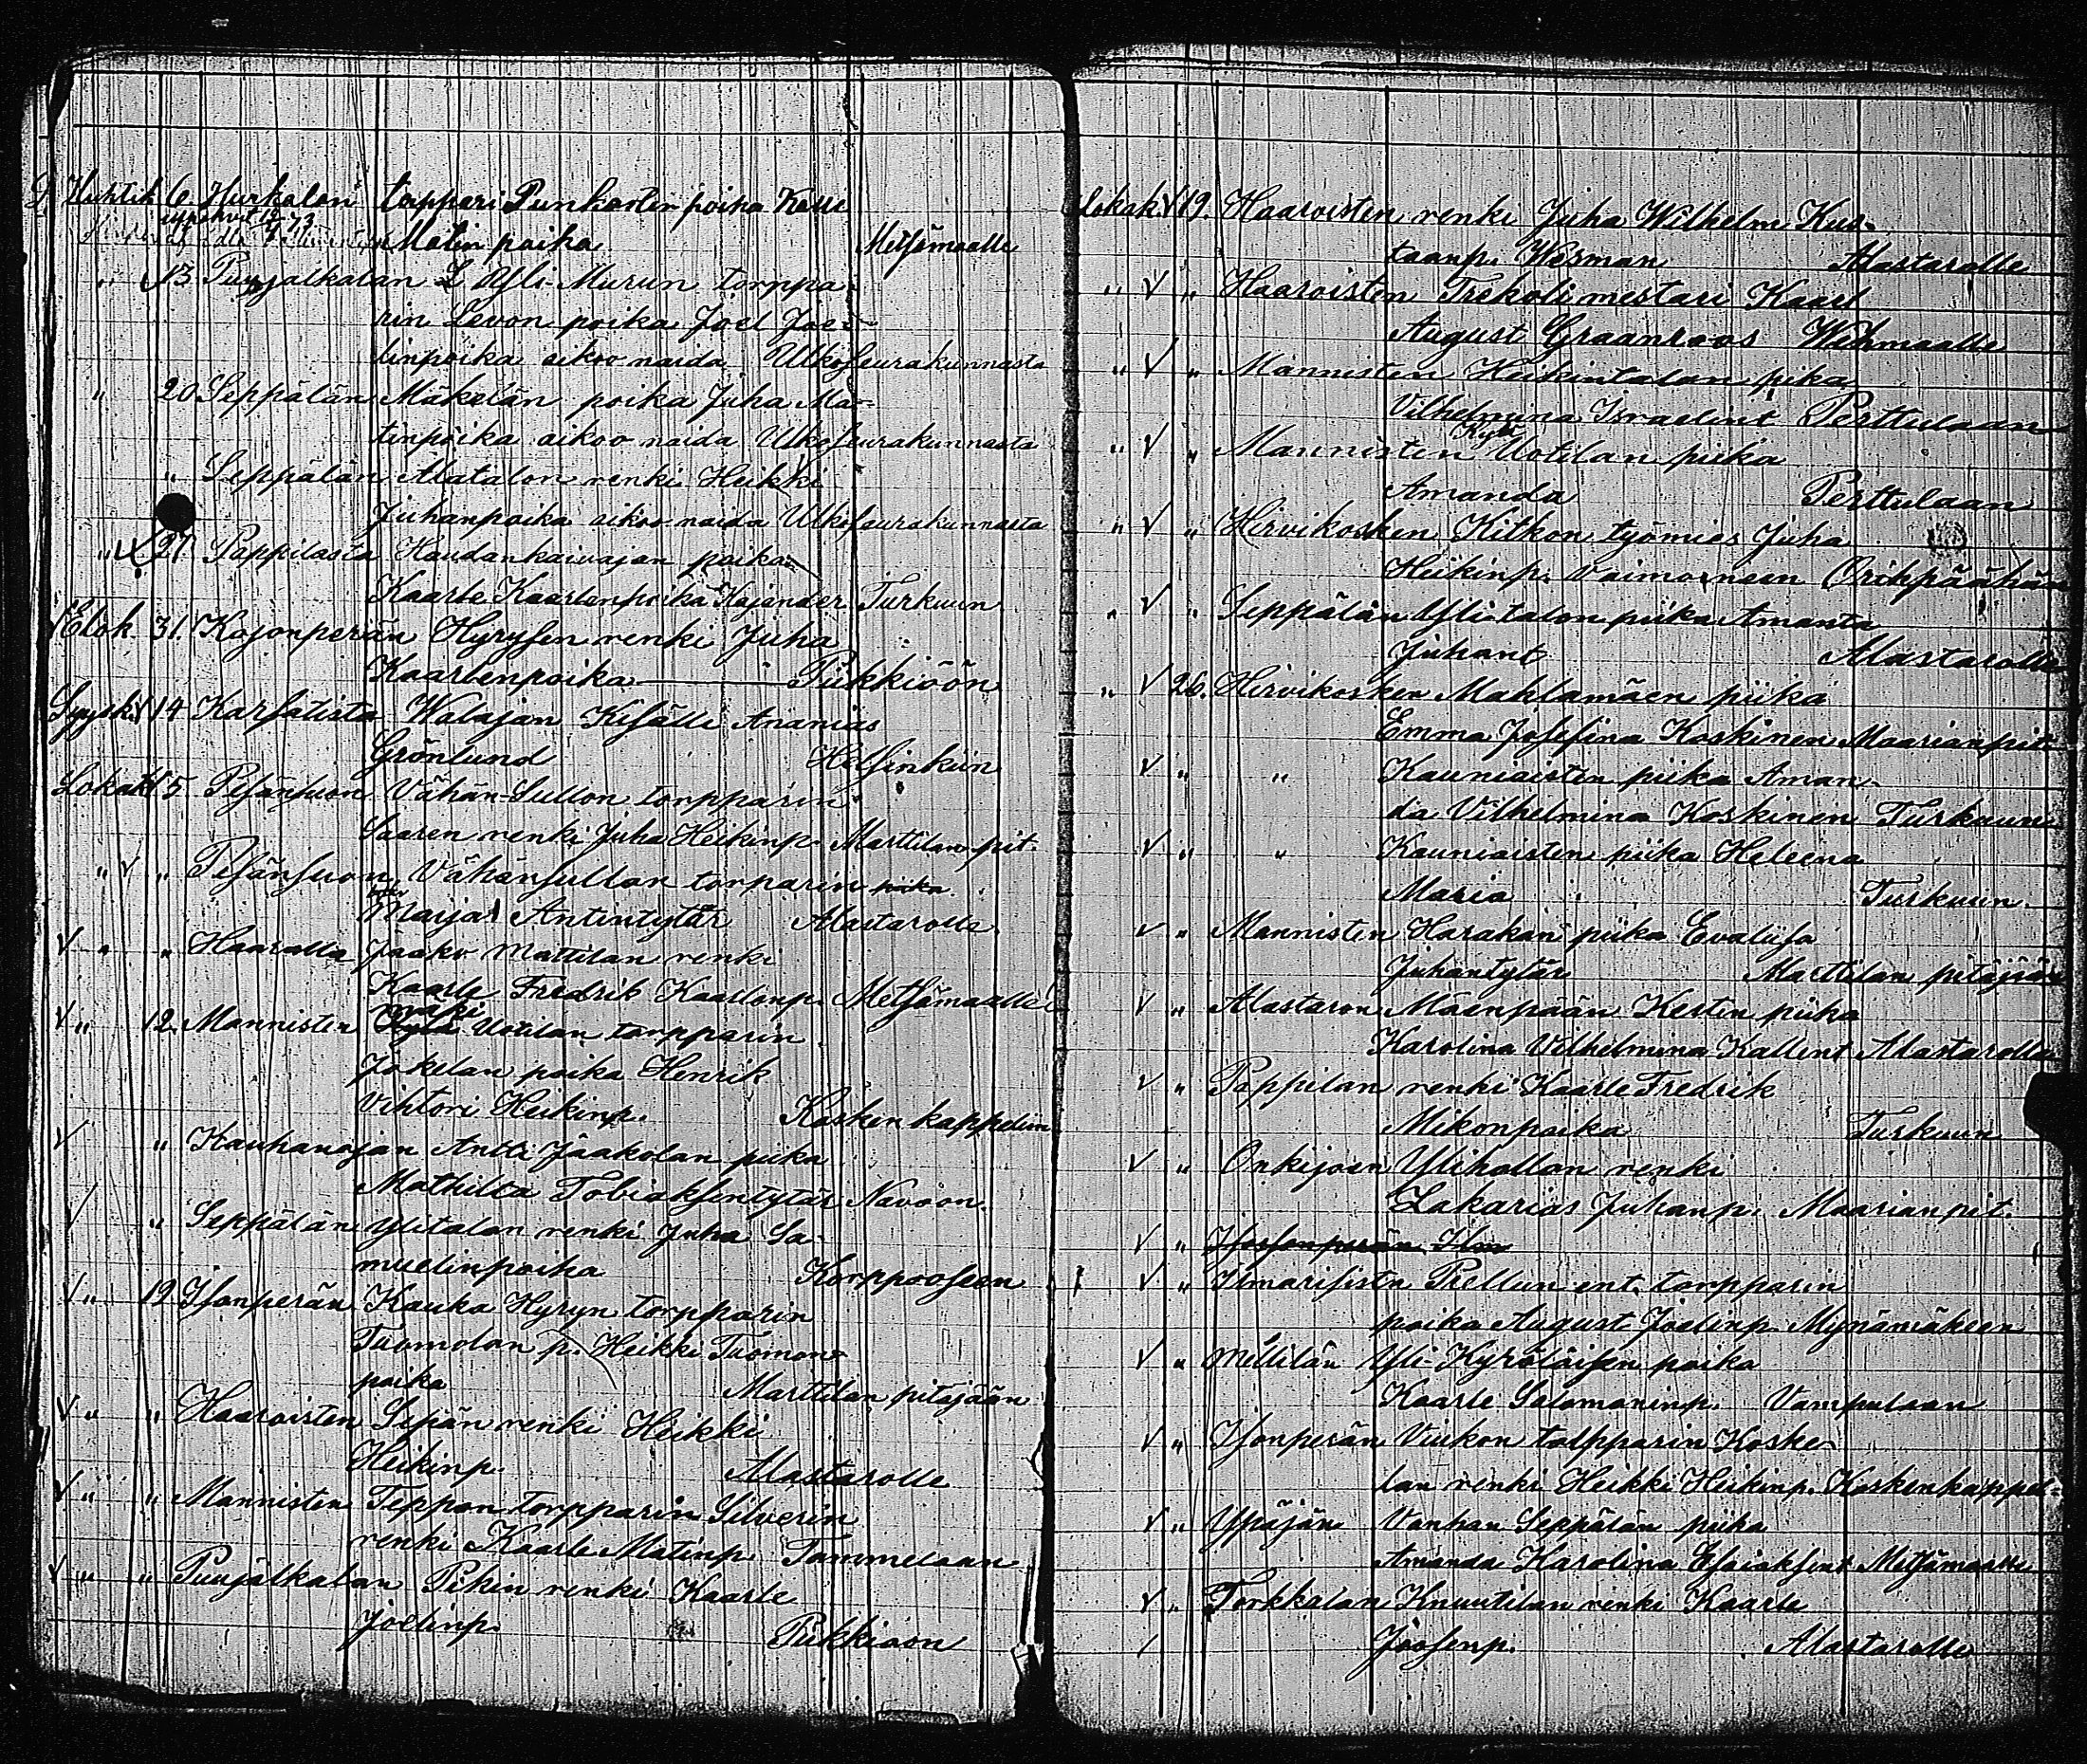 Huhtik 6. Hurkalon torppari Punkosten poika Kalle
Matin poika Metsämaalle
" 13 Puujalkalan L Yli-Murun torppa-
rin Levon poika Joel Joe-
linpoika aikoo naida Ulkoseurakunnasta
" 20 Seppälän Mäkelän poika Juha Ma-
tinpoika aikoo naida Ulkoseurakunnasta
" Seppälän Alatalon renki Heikki
Juhanpoika aikoo naida Ulkoseurakunnasta
" 27. Pappilasta Haudankaivajan poika
Kaarle Kaarlenpoika Kajander Turkuun
Elok. 31. Kojonperän Hyrysen renki Juha
Kaarlenpoika Piikkiöön
Syysk. 14 Karsatista Walajan Kisälli Ananias
Grönlund Helsinkiin
Lokak 5. Pesänsuon Vähän-Sullon torpparin
Saaren renki Juha Heikinp. Marttilan pit.
" V " Pesänsuon Vähänsullon torparin piika
Marja Antintytär Alastarolle
V " " Haaralla Jaakو Mattilan renki
Kaarle Fredrik Kaarlonp. Metsämaalle
V " 12. Mannisten Uotilan torpparin
Jokelan poika Henrik
Vihtori Heikinp. Kosken kappeliin
V " Kauhanojan Antti Jaakolan piika
Mathilta Tobiaksentytär Navoon.
" Seppälän Ylitalon renki Juha Sa-
muelinpoika Korppooseen
V " 19 Isonperän Kauka Hyryn torpparin
Tuomolan p. Heikki Tuomon-
poika Marttilan pitäjään
V " " Haaroisten Sepän renki Heikki
Heikinp. Alastarolle
V " " Mannisten Teppon torpparin Silverin
renki Kaarle Matinp. Tammelaan
V " " Puujalkalan Pikin renki Kaarle
Joelinp. Piikkiöön
Lokak. V 19. Haaroisten renki Juha Wilhelm Kus-
taanp. Wesman Alastarolle
" V " Haaroisten Trekoli mestari Kaarl
August Graanroos Wehmaalle
" V " Mannisten Heikintalon piika
Vilhelmina Israelint Perttulaan
Kylä
" V " Mannisten Uotilan piika
Amanda Perttulaan
" V " Hirvikosken Kitkon työmies Juha
Heikinp. Vaimoineen Oripäähän
" V " Seppälän Ylitalon piika Amanta
Juhant Alastarolle
" V 26. Hirvikosken Mahlamäen piika
Emma Josefina Koskinen Maarian pit.
V " " Kauniaisten piika Aman-
da Vilhelmina Koskinen Turkuun
V " " Kauniaisten piika Heleena
Maria Turkuun
V " Mannisten Harakan piika Evaliisa
Juhantytär Marttilan pitäjään
V " Alastaron Maenpään Kesten piika
Karolina Vilhelmina Kallent Alastarolle
V " Pappilan renki Kaarle Fredrik
Mikonpoika Turkuun
V " Onkijoen Ylihollon renki
Zakarias Juhanp. Maarian pit.
V "
V " Ilmarisista Prellun ent. torpparin
poika August Joelinp. Mynämäkeen
V " Mellilän Yli-Kyröläisen poika
Kaarle Salomoninp. Vampulaan
V " Isonperän Viikon torpparin Koske-
lan renki Heikki Heikinp. Koskenkappel-
V " Ypäjän Vanhan Seppälän piika
Amanda Karolina Esaiaksent Metsämaalle
V " Torkkalan Knuutilan renki Kaarle
Joosenp. Alastarolle